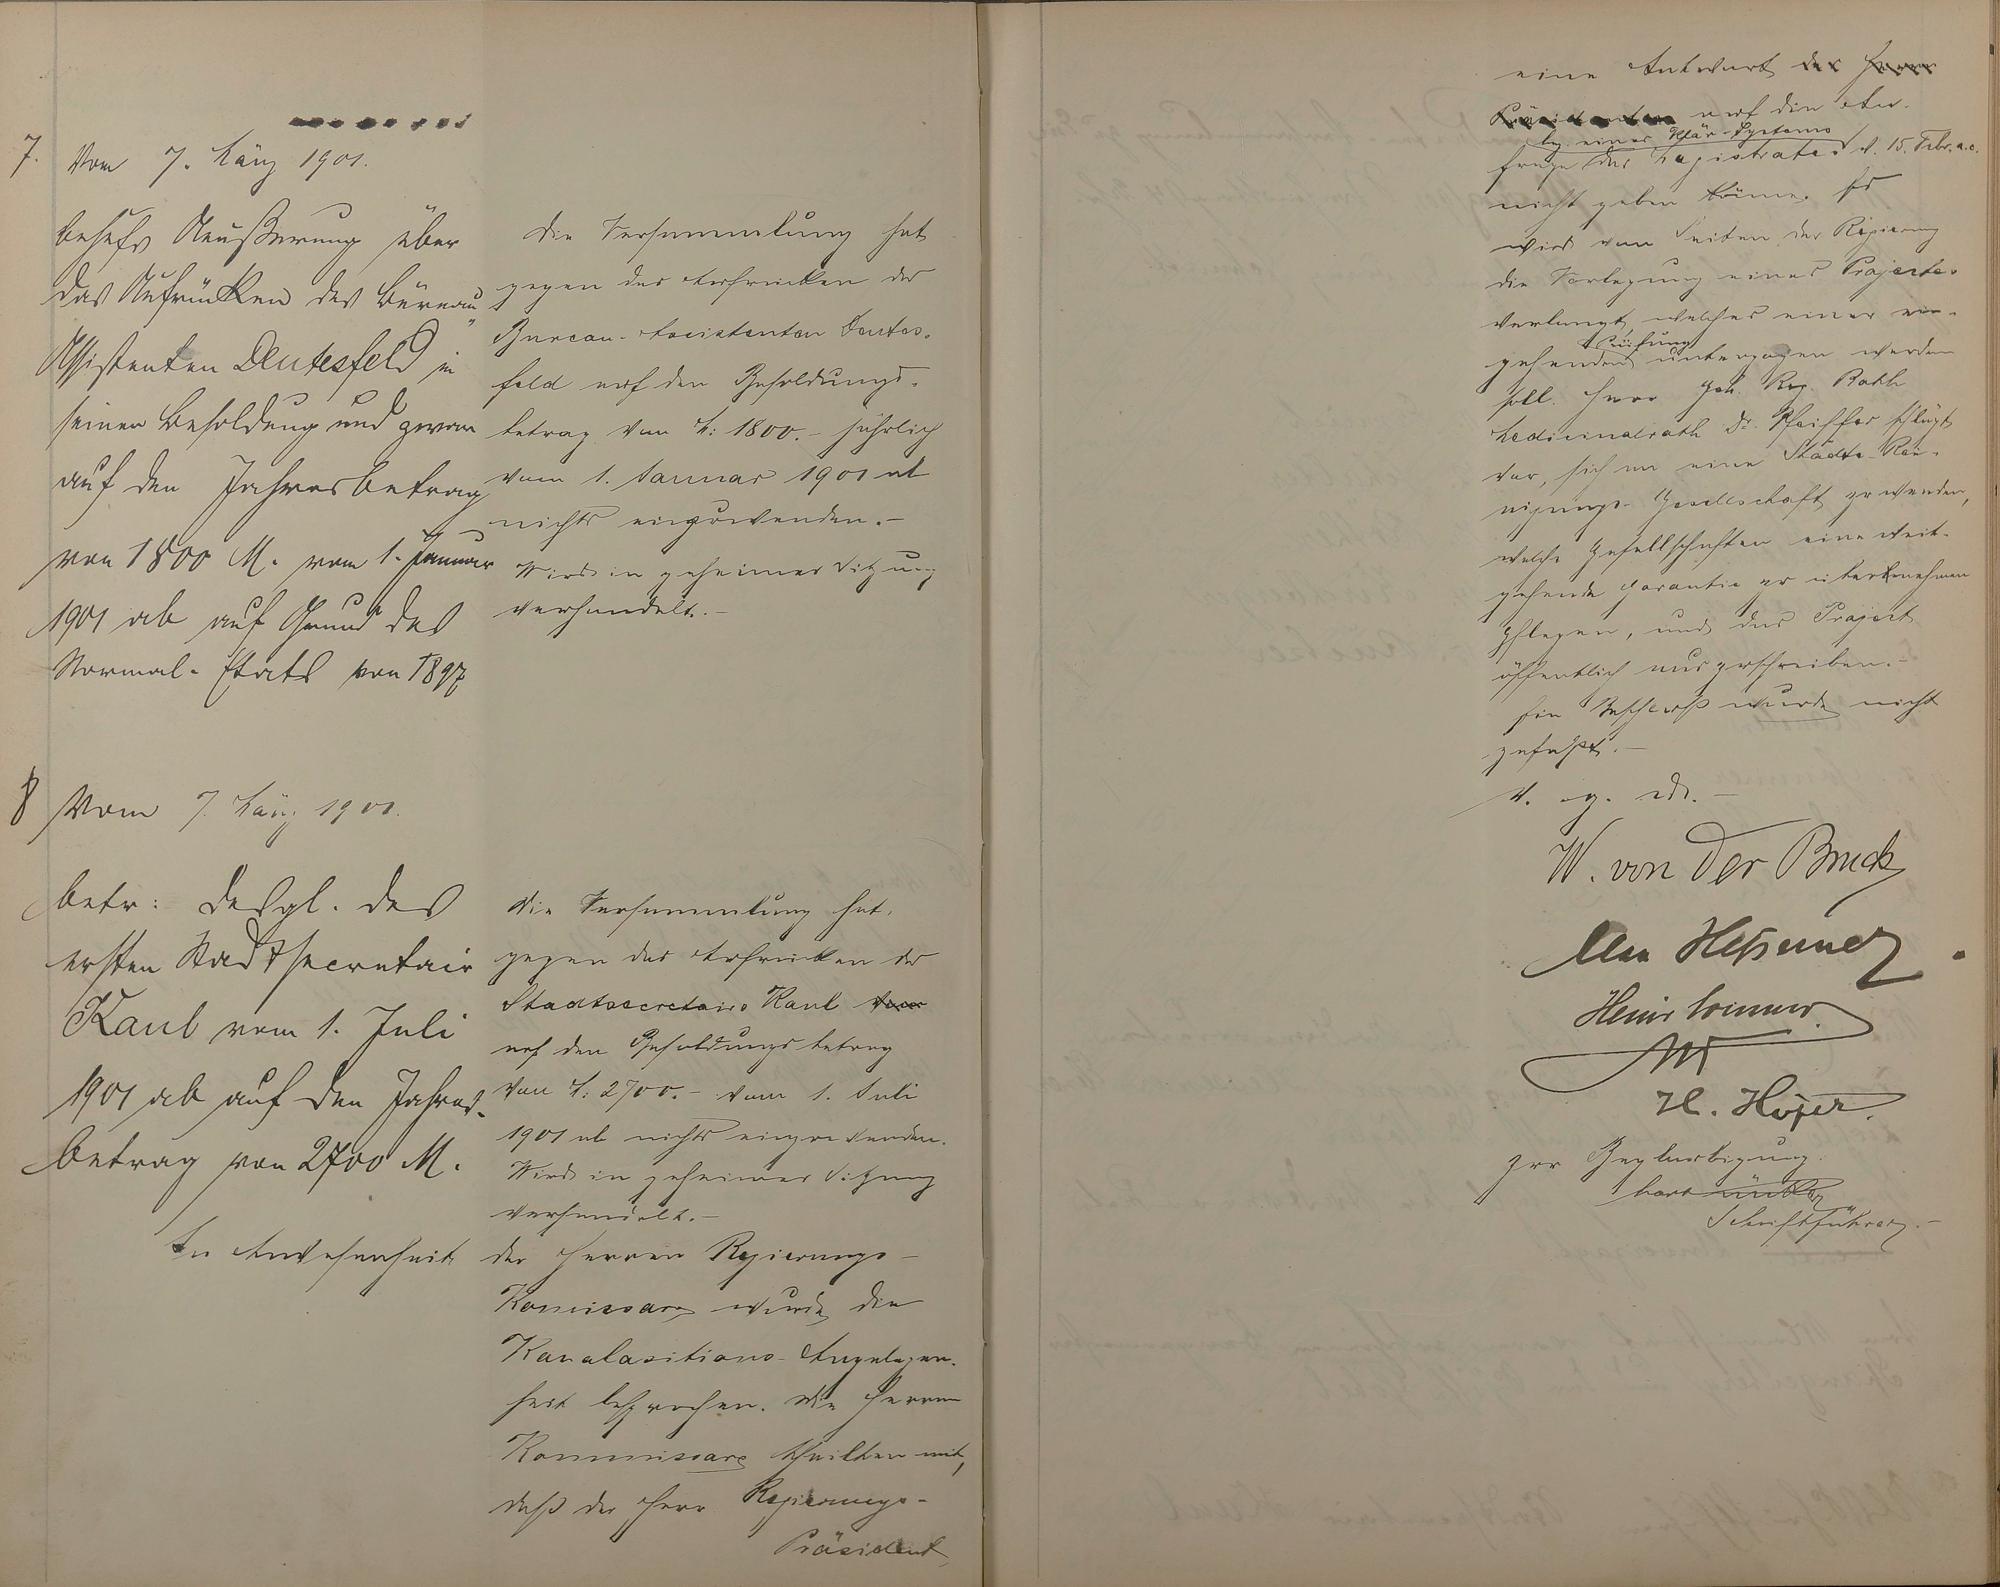 7.
Vom 7. März 1901.
behufs Äußerung über
das Aufrücken des Büreau-
Assistenten Dentesfeld in
seiner Besoldung und zwar
auf den Jahresbetrag
von 1800 M. vom 1. Januar
1901 ab auf Grund des
Normal-Etats von 1897
Die Versammlung hat
gegen das Aufrücken des
Bureau-Assistenten Dentes-
feld auf den Besoldungs-
betrag von M: 1800.- jährlich
vom 1. Januar 1901 ab
nichts einzuwenden.-
Wird in geheimer Sitzung
verhandelt.-
8
Vom 7. März 1901.
betr: desgl. des
ersten Stadtsecretair
Kaul vom 1. Juli
1901 ab auf den Jahres-
betrag von 2700 M.
Die Versammlung hat
gegen das Aufrücken des
Stadtsecretairs Kaul
auf den Besoldungsbetrag
von M: 2700.- vom 1. Juli
1901 ab nichts einzuwenden.
Wird in geheimer Sitzung
verhandelt.-
In Anwesenheit der Herren Regierungs-
Komissare wurde die
Kanalasitions-Angelegen-
heit besprochen. Die Herren
Kommissare theilten mit,
daß der Herr Regierungs-
Präsident
eine Antwort der Herrn
Präsidenten auf die An-
btr. eines Klär-Systems
frage des Magistrates v. 15. Febr. a.c.
nicht geben könne. Es
wird von Seiten der Regierung
die Vorlegung eines Projectes
verlangt, welches einer ein-
Prüfung
gehenden unterzogen werden
soll. Herr Geh. Reg. Rath
Medicinalrath Dr. Pfeiffer schlägt
vor, sich an eine Städte-Rei-
nigungs-Gesellschaft zu wenden,
welche Gesellschaften eine weit-
gehende Garantie zu übernehmen
pflegen, und das Project
öffentlich auszuschreiben.-
Ein Beschluß wurde nicht
gefaßt.-
v. g. u.-
W. von der Bruck
Heinr
H. Höfer
zur Beglaubigung.
Schriftführer.-